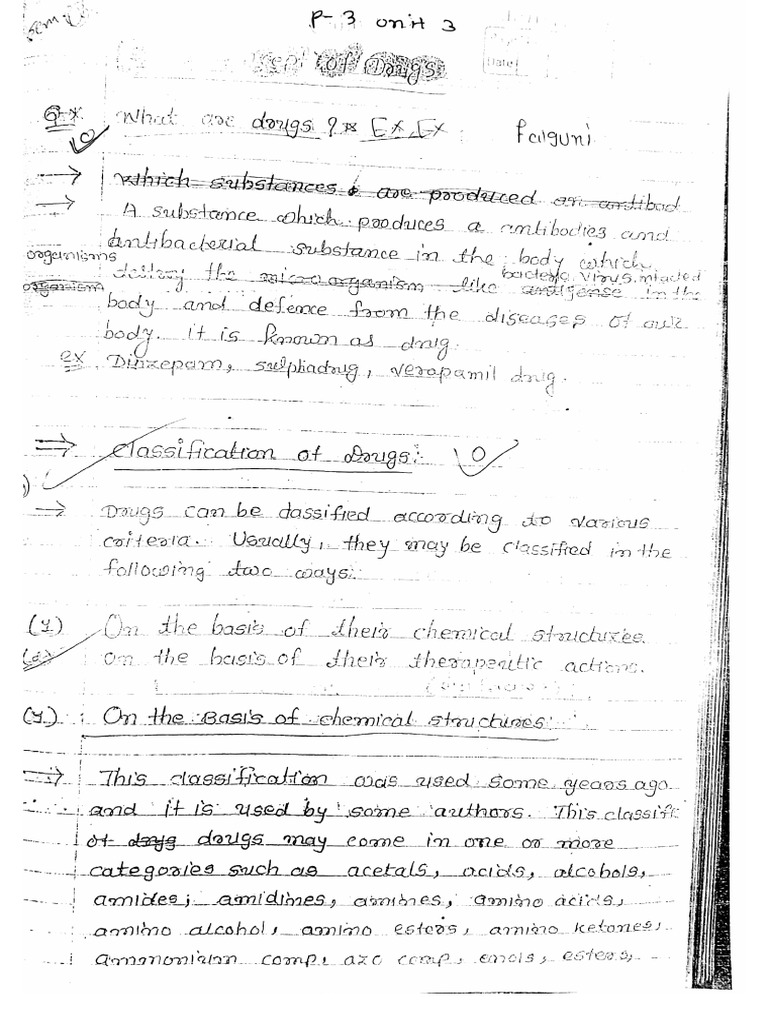 Sem
P-3 unit 3
of Drugs
Date
Q-* What are drugs ? Ex. Ex. Falguni
→ which substances are produced an antibod
→ A substance which produces a antibodies and
antibacterial substance in the body which
organisms destroy the microorganism like antigense bacteria virus infacted in the
organism
body and defence from the diseases of our
body. it is known as drug.
ex Dinzepam, sulphadrug, verapamil drug.
⇒ Classification of Drugs:
→ Drugs can be classified according to various
criteria. Usually, they may be classified in the
following two ways:
(1) On the basis of their chemical structures.
(2) on the basis of their therapeutic actions.
(1.) On the Basis of chemical structures:
⇒ This classification was used some years ago
and it is used by some authors. This classifi
of drugs drugs may come in one or more
categories such as acetals, acids, alcohols,
amides, amidines, amines, amino acids,
amino alcohol, amino esters, amino ketones,
ammonium comp, azo comp, enols, esters,